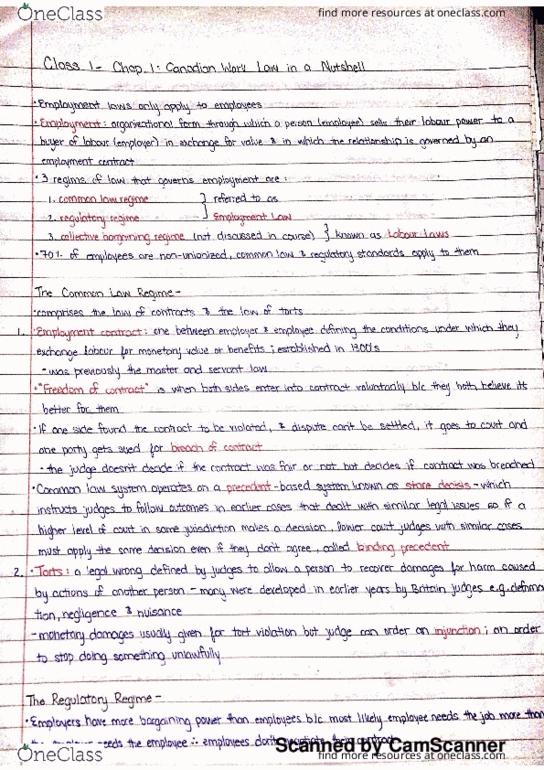 OneClass
find more resources at oneclass.com
Class 1 - Chap. 1: Canadian Work Law in a Nutshell
• Employment laws only apply to employees
• Employment: organizational form through which a person (employee) sells their labour power to a
buyer of labour (employer) in exchange for value & in which the relationship is governed by an
employment contract
• 3 regimes of law that governs employment are:
1. common law regime } referred to as
2. regulatory regime } Employment Law
3. collective bargaining regime (not discussed in course) } known as Labour Laws
• 70% of employees are non-unionized, common law & regulatory standards apply to them
The Common Law Regime -
• comprises the law of contracts & the law of torts
1. • Employment contract: one between employer & employee defining the conditions under which they
exchange labour for monetary value or benefits; established in 1800's
- was previously the master and servant law
• "Freedom of contract" is when both sides enter into contract voluntarily b/c they both believe its
better for them
• If one side found the contract to be violated, & dispute can't be settled, it goes to court and
one party gets sued for breach of contract
• the judge doesn't decide if the contract was fair or not but decides if contract was breached
• Common law system operates on a precedent-based system known as stare decisis - which
instructs judges to follow outcomes in earlier cases that dealt with similar legal issues so if a
higher level of court in same jurisdiction makes a decision, lower court judges with similar cases
must apply the same decision even if they don't agree, called binding precedent
2. • Torts: a legal wrong defined by judges to allow a person to recover damages for harm caused
by actions of another person - many were developed in earlier years by Britain judges e.g. defama
tion, negligence & nuisance
- monetary damages usually given for tort violation but judge can order an injunction; an order
to stop doing something unlawfully
The Regulatory Regime -
• Employers have more bargaining power than employees b/c most likely employee needs the job more than
needs the employee ∴ employees don't
Scanned by CamScanner
OneClass
find more resources at oneclass.com